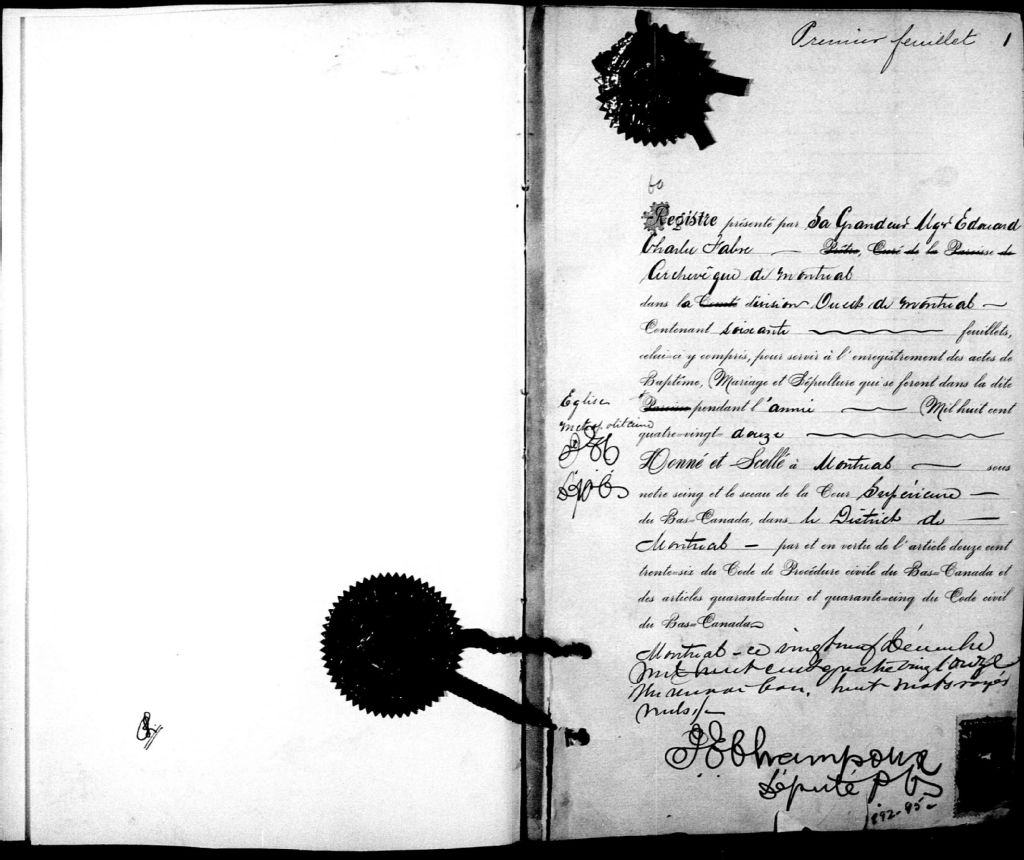 Premier feuillet 1
60
Registre présenté par Sa Grandeur Mgr Edouard
Charles Fabre — Prêtre, Curé de la Paroisse de
Archevêque de Montreal
dans la Comté division Ouest de Montreal —
Contenant soixante feuillets,
celui=ci y compris, pour servir à l'enregistrement des actes de
Baptême, Mariage et Sépulture qui se feront dans la dite
Eglise
Metropolitaine
Paroisse pendant l'année — Mil huit cent
quatre=vingt= douze
Donné et Scellé à Montreal — sous
notre seing et le sceau de la Cour Supérieure —
du Bas=Canada, dans le District de —
Montreal — par et en vertu de l'article douze cent
trente=six du Code de Procédure civile du Bas=Canada et
des articles quarante=deux et quarante=cinq du Code civil
du Bas=Canada
Montreal - ce vingt neuf Décembre
Mil huit cent quatre vingt onze
Un renvoi bon, huit mots rayés
nuls
J E Champoux
Député P C S